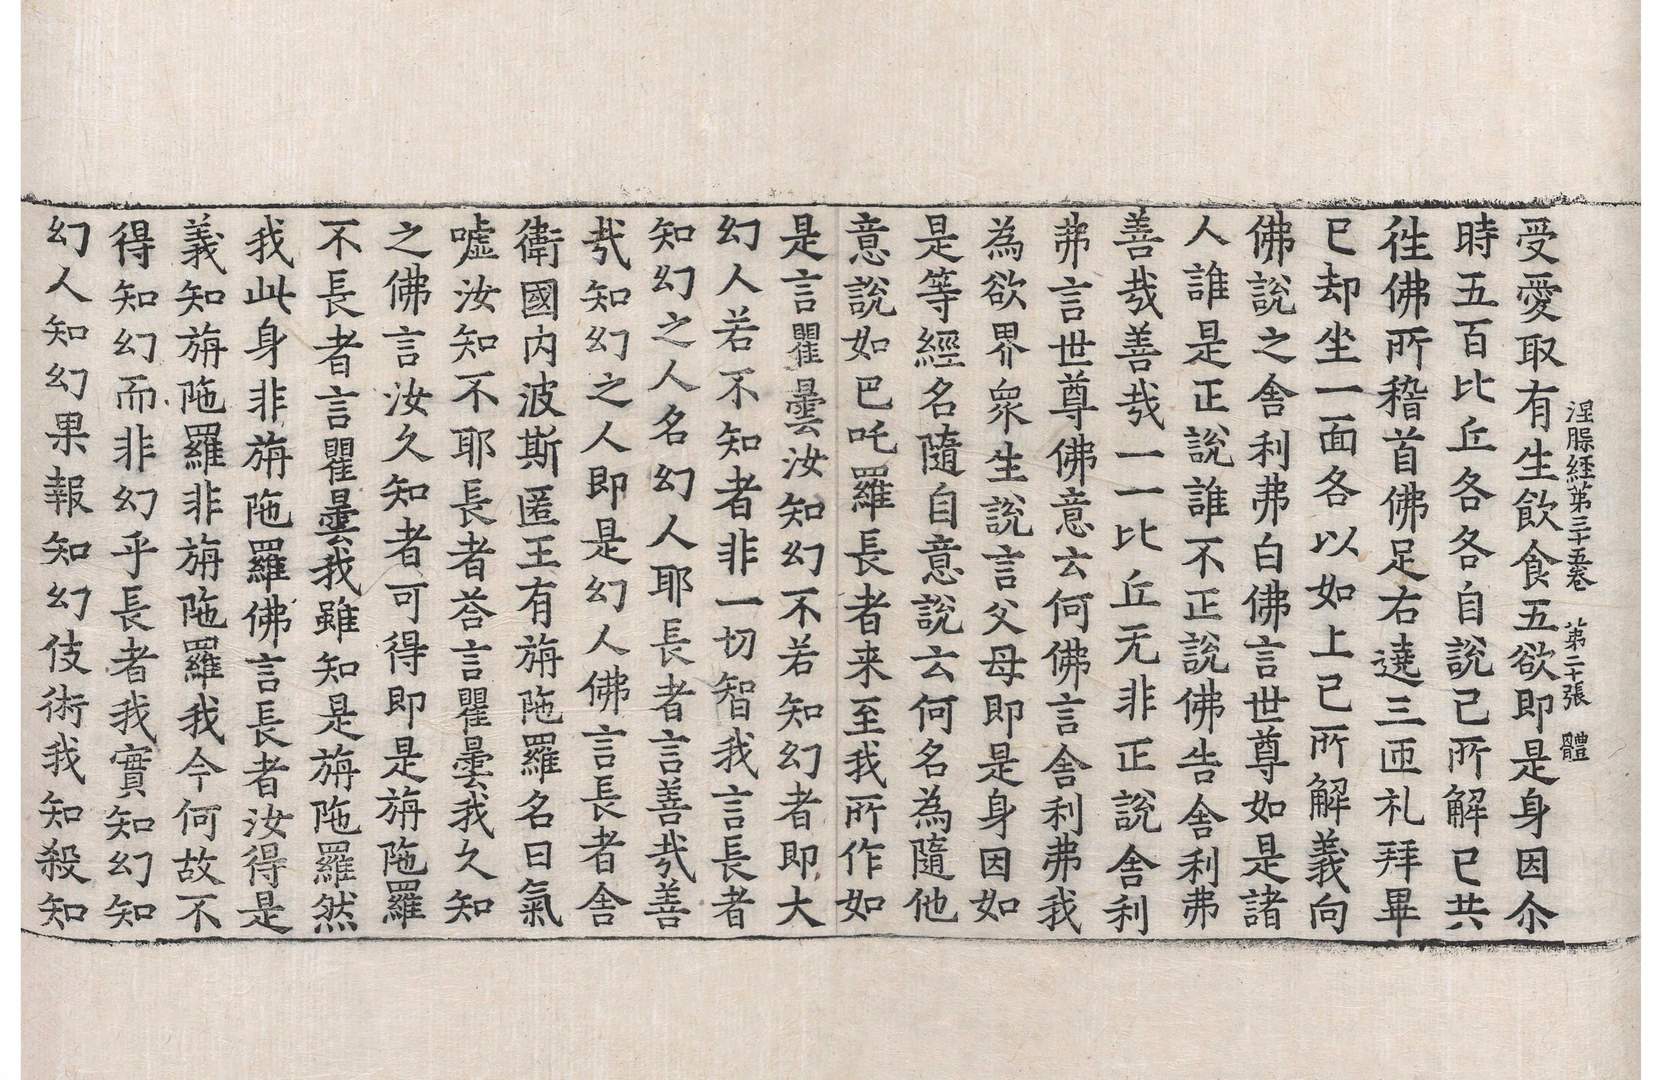 涅槃経第三十五卷　第二十張　體
受愛取有生飲食五欲即是身因尒
時五百比丘各各自說己所解已共
往佛所稽首佛足右遶三匝礼拜畢
已却坐一面各以如上己所解義向
佛說之舍利弗白佛言世尊如是諸
人誰是正說誰不正說佛告舍利弗
善哉善哉一一比丘无非正說舍利
弗言世尊佛意云何佛言舍利弗我
為欲界衆生說言父母即是身因如
是等經名隨自意說云何名為隨他
意說如巴吒羅長者来至我所作如
是言瞿曇汝知幻不若知幻者即大
幻人若不知者非一切智我言長者
知幻之人名幻人耶長者言善哉善
哉知幻之人即是幻人佛言長者舍
衛國内波斯匿王有旃陁羅名曰氣
嘘汝知不耶長者荅言瞿曇我久知
之佛言汝久知者可得即是旃陁羅
不長者言瞿曇我雖知是旃陁羅然
我此身非旃陁羅佛言長者汝得是
義知旃陁羅非旃陁羅我今何故不
得知幻而非幻乎長者我實知幻知
幻人知幻果報知幻伎術我知殺知